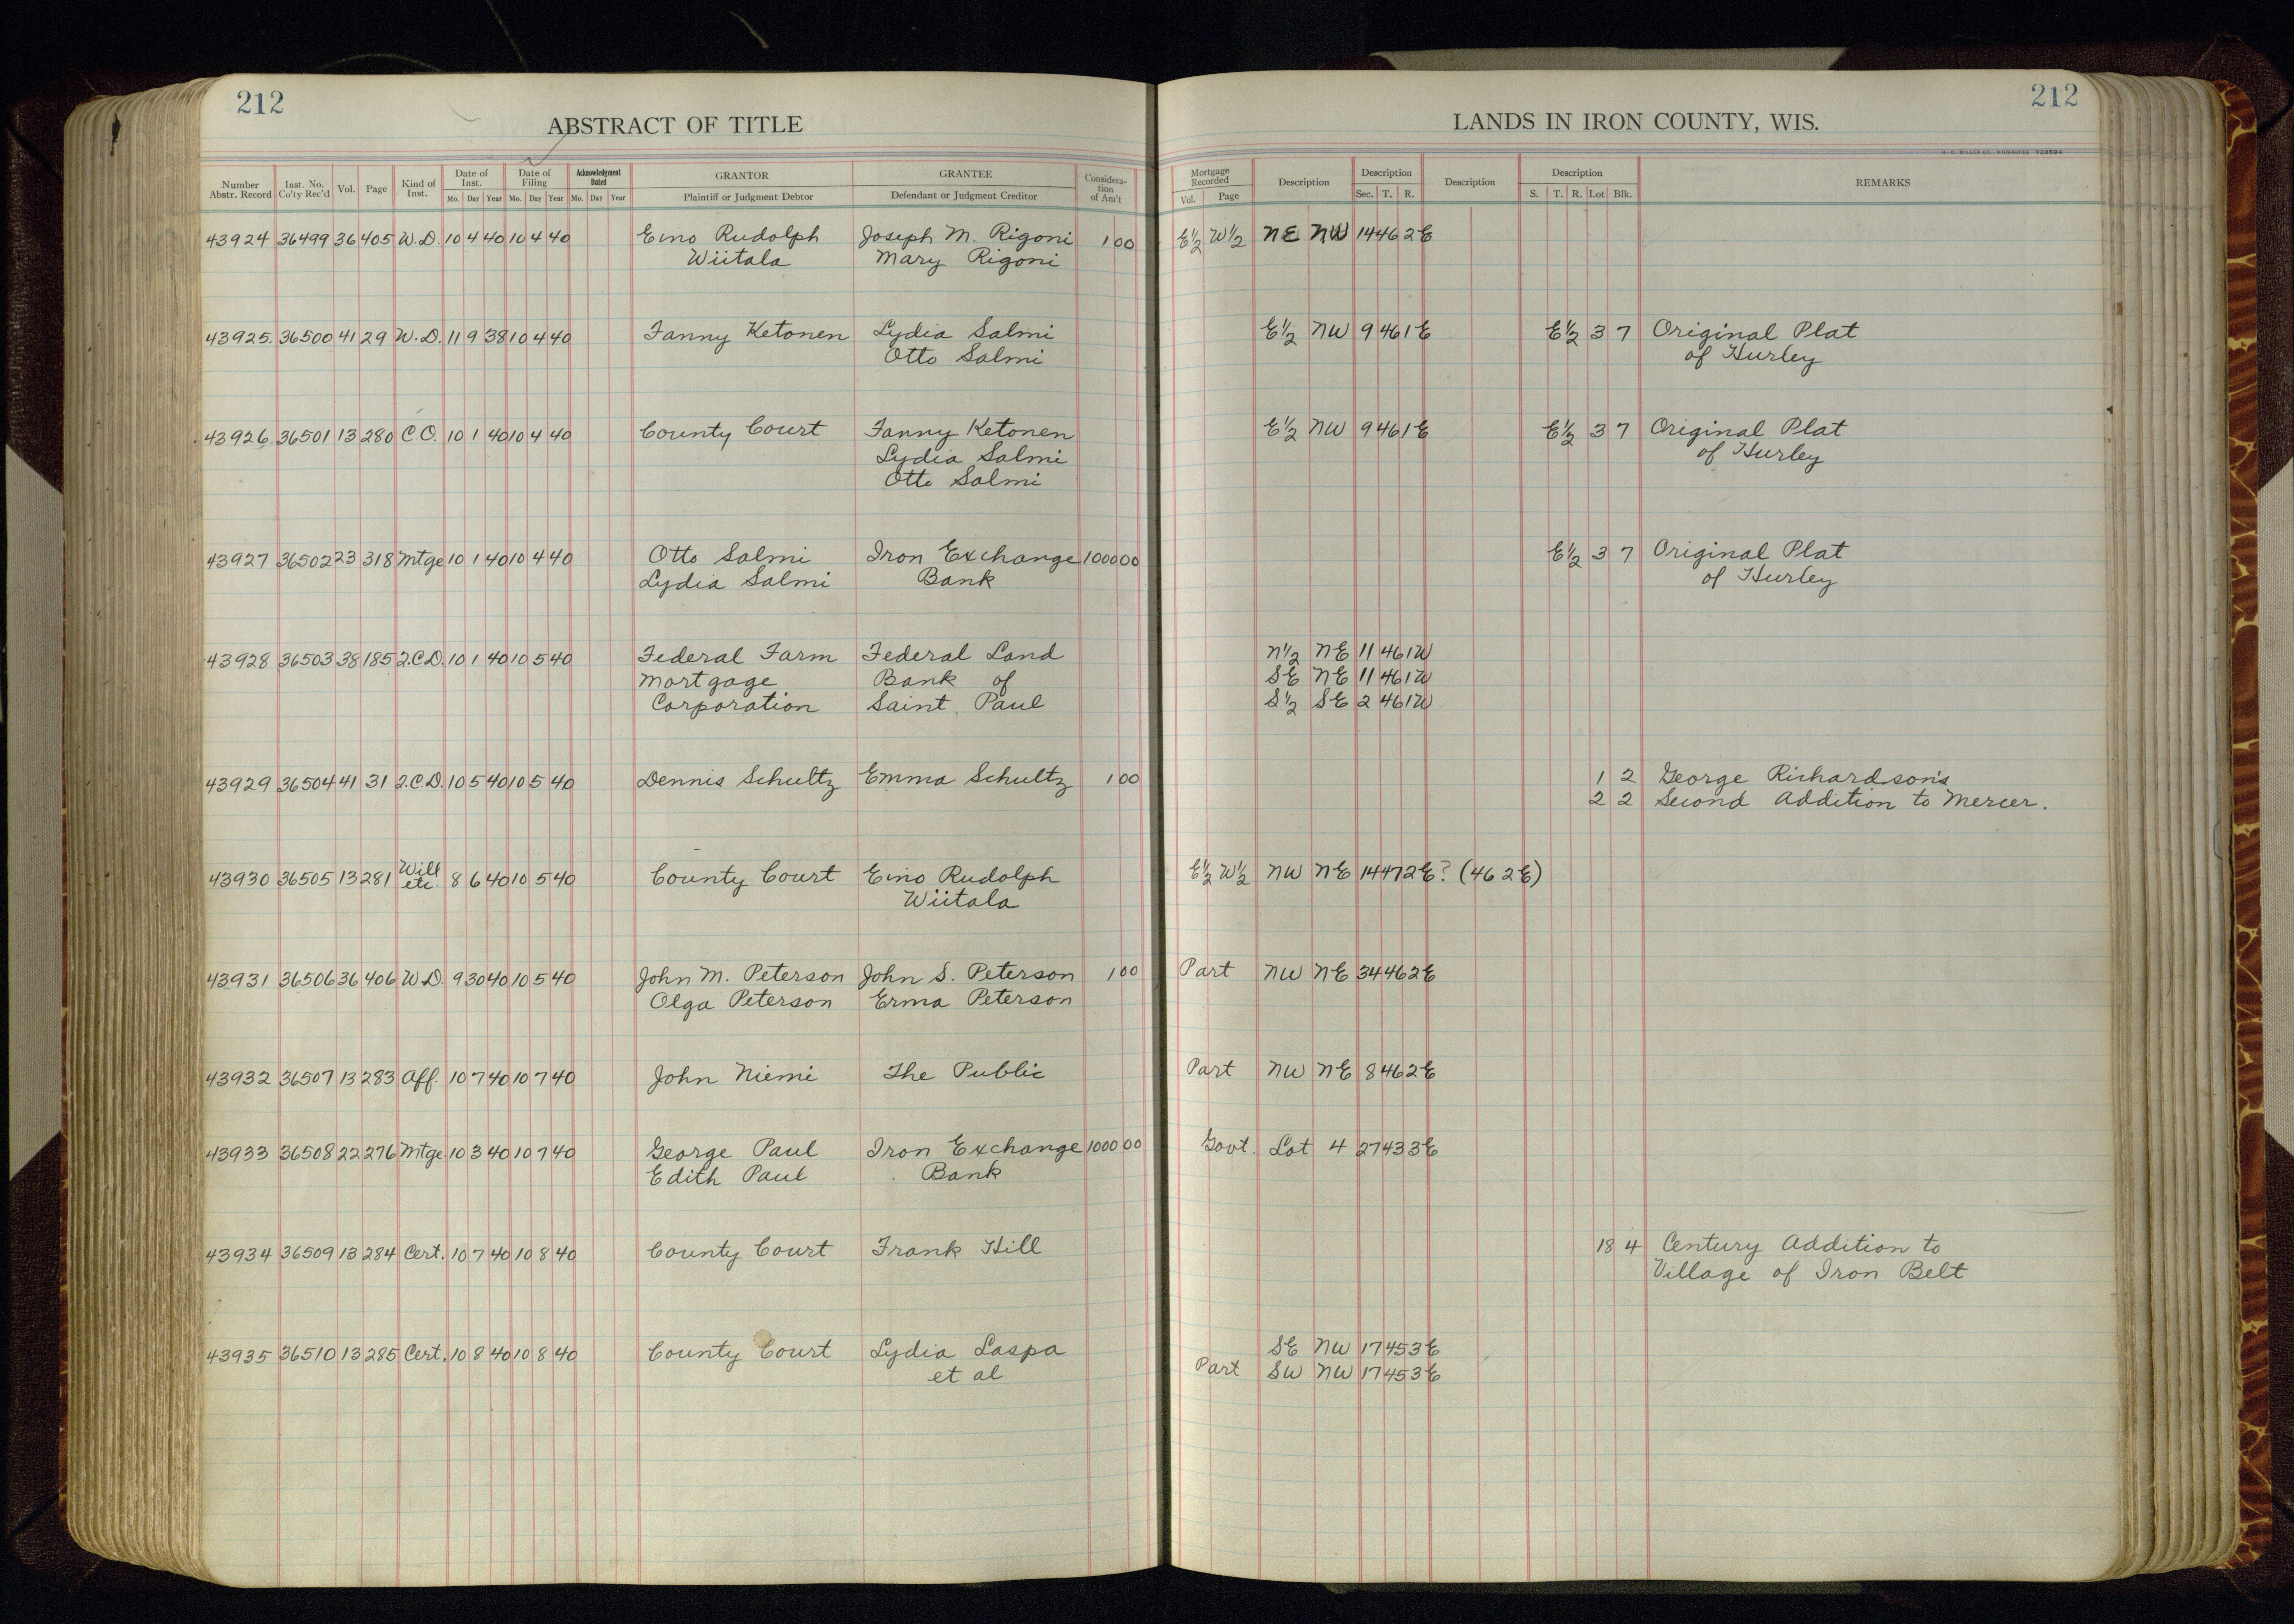 212
ABSTRACT OF TITLE
Number Abstr. Record Inst. No. Co'ty Rec'd Vol. Page Kind of Inst. Date of Inst. Mo. Day Year Date of Filing Mo. Day Year Acknowledgment Dated Mo. Day Year GRANTOR Plaintiff or Judgment Debtor GRANTEE Defendant or Judgment Creditor Considera-tion of Am't
43924 36499 36 405 W.D. 10 4 40 10 4 40 Eino Rudolph Joseph M. Rigoni 1 00
Wiitala Mary Rigoni
43925 36500 41 29 W.D. 11 9 38 10 4 40 Fanny Ketonen Lydia Salmi
Otto Salmi
43926 36501 13 280 C.O. 10 1 40 10 4 40 County Court Fanny Ketonen
Lydia Salmi
Otto Salmi
43927 36502 23 318 Mtge 10 1 40 10 4 40 Otto Salmi Iron Exchange 1000 00
Lydia Salmi Bank
43928 36503 38 185 2.C.D. 10 1 40 10 5 40 Federal Farm Federal Land
Mortgage Bank of
Corporation Saint Paul
43929 36504 41 31 2.C.D. 10 5 40 10 5 40 Dennis Schultz Emma Schultz 1 00
43930 36505 13 281 Will etc. 8 6 40 10 5 40 County Court Eino Rudolph
Wiitala
43931 36506 36 406 W.D. 9 30 40 10 5 40 John M. Peterson John S. Peterson 1 00
Olga Peterson Erma Peterson
43932 36507 13 283 Aff. 10 7 40 10 7 40 John Niemi The Public
43933 36508 22 276 Mtge 10 3 40 10 7 40 George Paul Iron Exchange 1000 00
Edith Paul Bank
43934 36509 13 284 Cert. 10 7 40 10 8 40 County Court Frank Hill
43935 36510 13 285 Cert. 10 8 40 10 8 40 County Court Lydia Laspa
et al
212
LANDS IN IRON COUNTY, WIS.
Mortgage Recorded Vol. Page Description Description Sec. T. R. Description Description S. T. R. Lot Blk. REMARKS
E½ W½ NE NW 14 46 2E
E½ NW 9 46 1E E½ 3 7 Original Plat
of Hurley
E½ NW 9 46 1E E½ 3 7 Original Plat
of Hurley
E½ 3 7 Original Plat
of Hurley
N½ NE 11 46 1W
SE NE 11 46 1W
S½ SE 2 46 1W
1 2 George Richardson's
2 2 Second Addition to Mercer.
E½ W½ NW NE 14 47 2E? (46 2E)
Part NW NE 34 46 2E
Part NW NE 8 46 2E
Govt. Lot 4 27 43 3E
18 4 Century Addition to
Village of Iron Belt
SE NW 17 45 3E
Part SW NW 17 45 3E